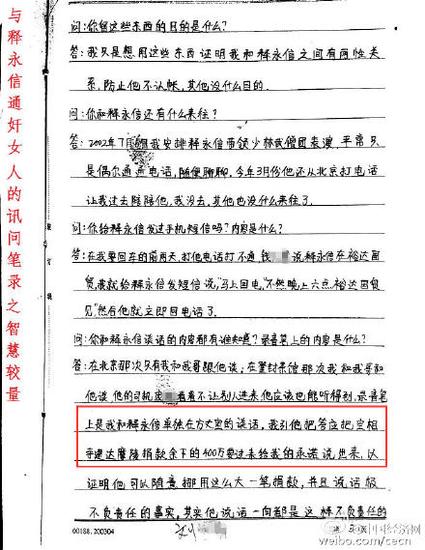 与释永信通奸女人的讯问笔录之智慧较量
问:你留这些东西的目的是什么?
答:我只是想用这些东西证明我和释永信之间有两性关
系,防止他不认帐,其他没什么目的.
问:你和释永信还有什么来往?
答:2002年7月 我安排释永信带领少林武僧团表演,平常只
是偶尔通通电话,随便聊聊,今年3月份他还从北京打电话
让我过去陪陪他,我没去,其他也没什么来往了.
问:你给释永信发过手机短信吗?内容是什么?
答:在我要回车的前两天,打他电话打不通,钱 说,释永信在裕达国
贸,我就给释永信发短信说,"马上回电,不然晚上六点裕达国贸
见",然后他就立即回电话了.
问:你和释永信谈话的内容都有谁知道?录音笔上的内容是什么?
答:在北京那次只有我和我哥跟他谈,在 那次我和我哥和
他谈,他的司机 看着不让别人进来,他应该也能听得到,录音笔
上是我和释永信单独在方丈室的谈话,我引他把答应把空相
寺建达摩院捐款余下的400万要过来给我的承诺说出来,以
证明他可以随意挪用这么大一笔捐款,并且说话极
不负责任的事实,其实他说话一向都是这样不负责任的
00188.200304
第 3 页
中国经济网
weibo.com/cecn